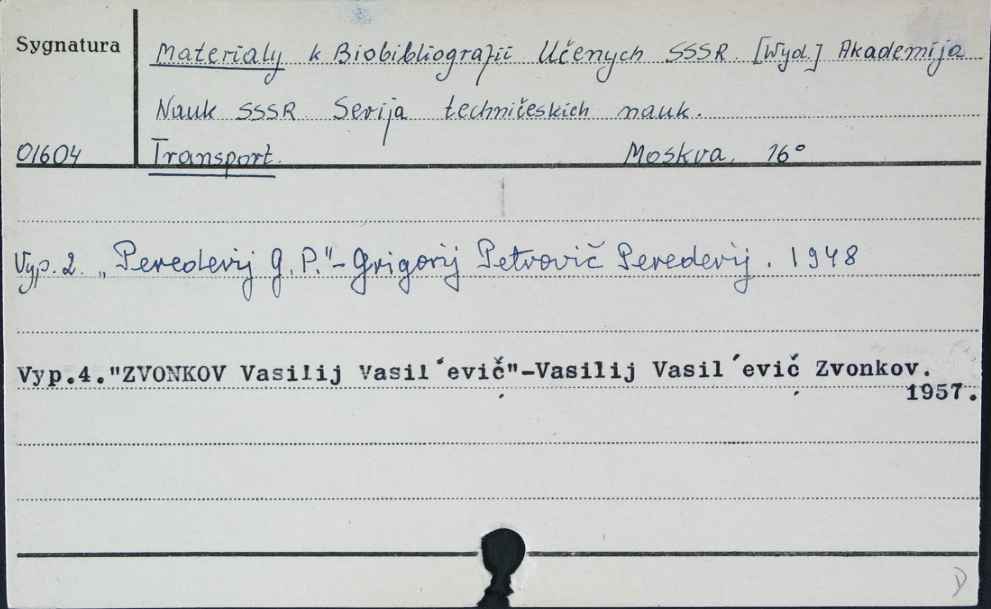 Sygnatura
Materialy k Biobibliografii Učenych SSSR. [Wyd.] Akademija
Nauk SSSR Serija techničeskich nauk.
01604 Transport. Moskva, 16°
Vyp. 2. „Perederij G. P."-Grigorij Petrovič Perederij. 1948
Vyp.4."ZVONKOV Vasilij Vasil´evič"-Vasilij Vasil´evič Zvonkov.
1957.
D